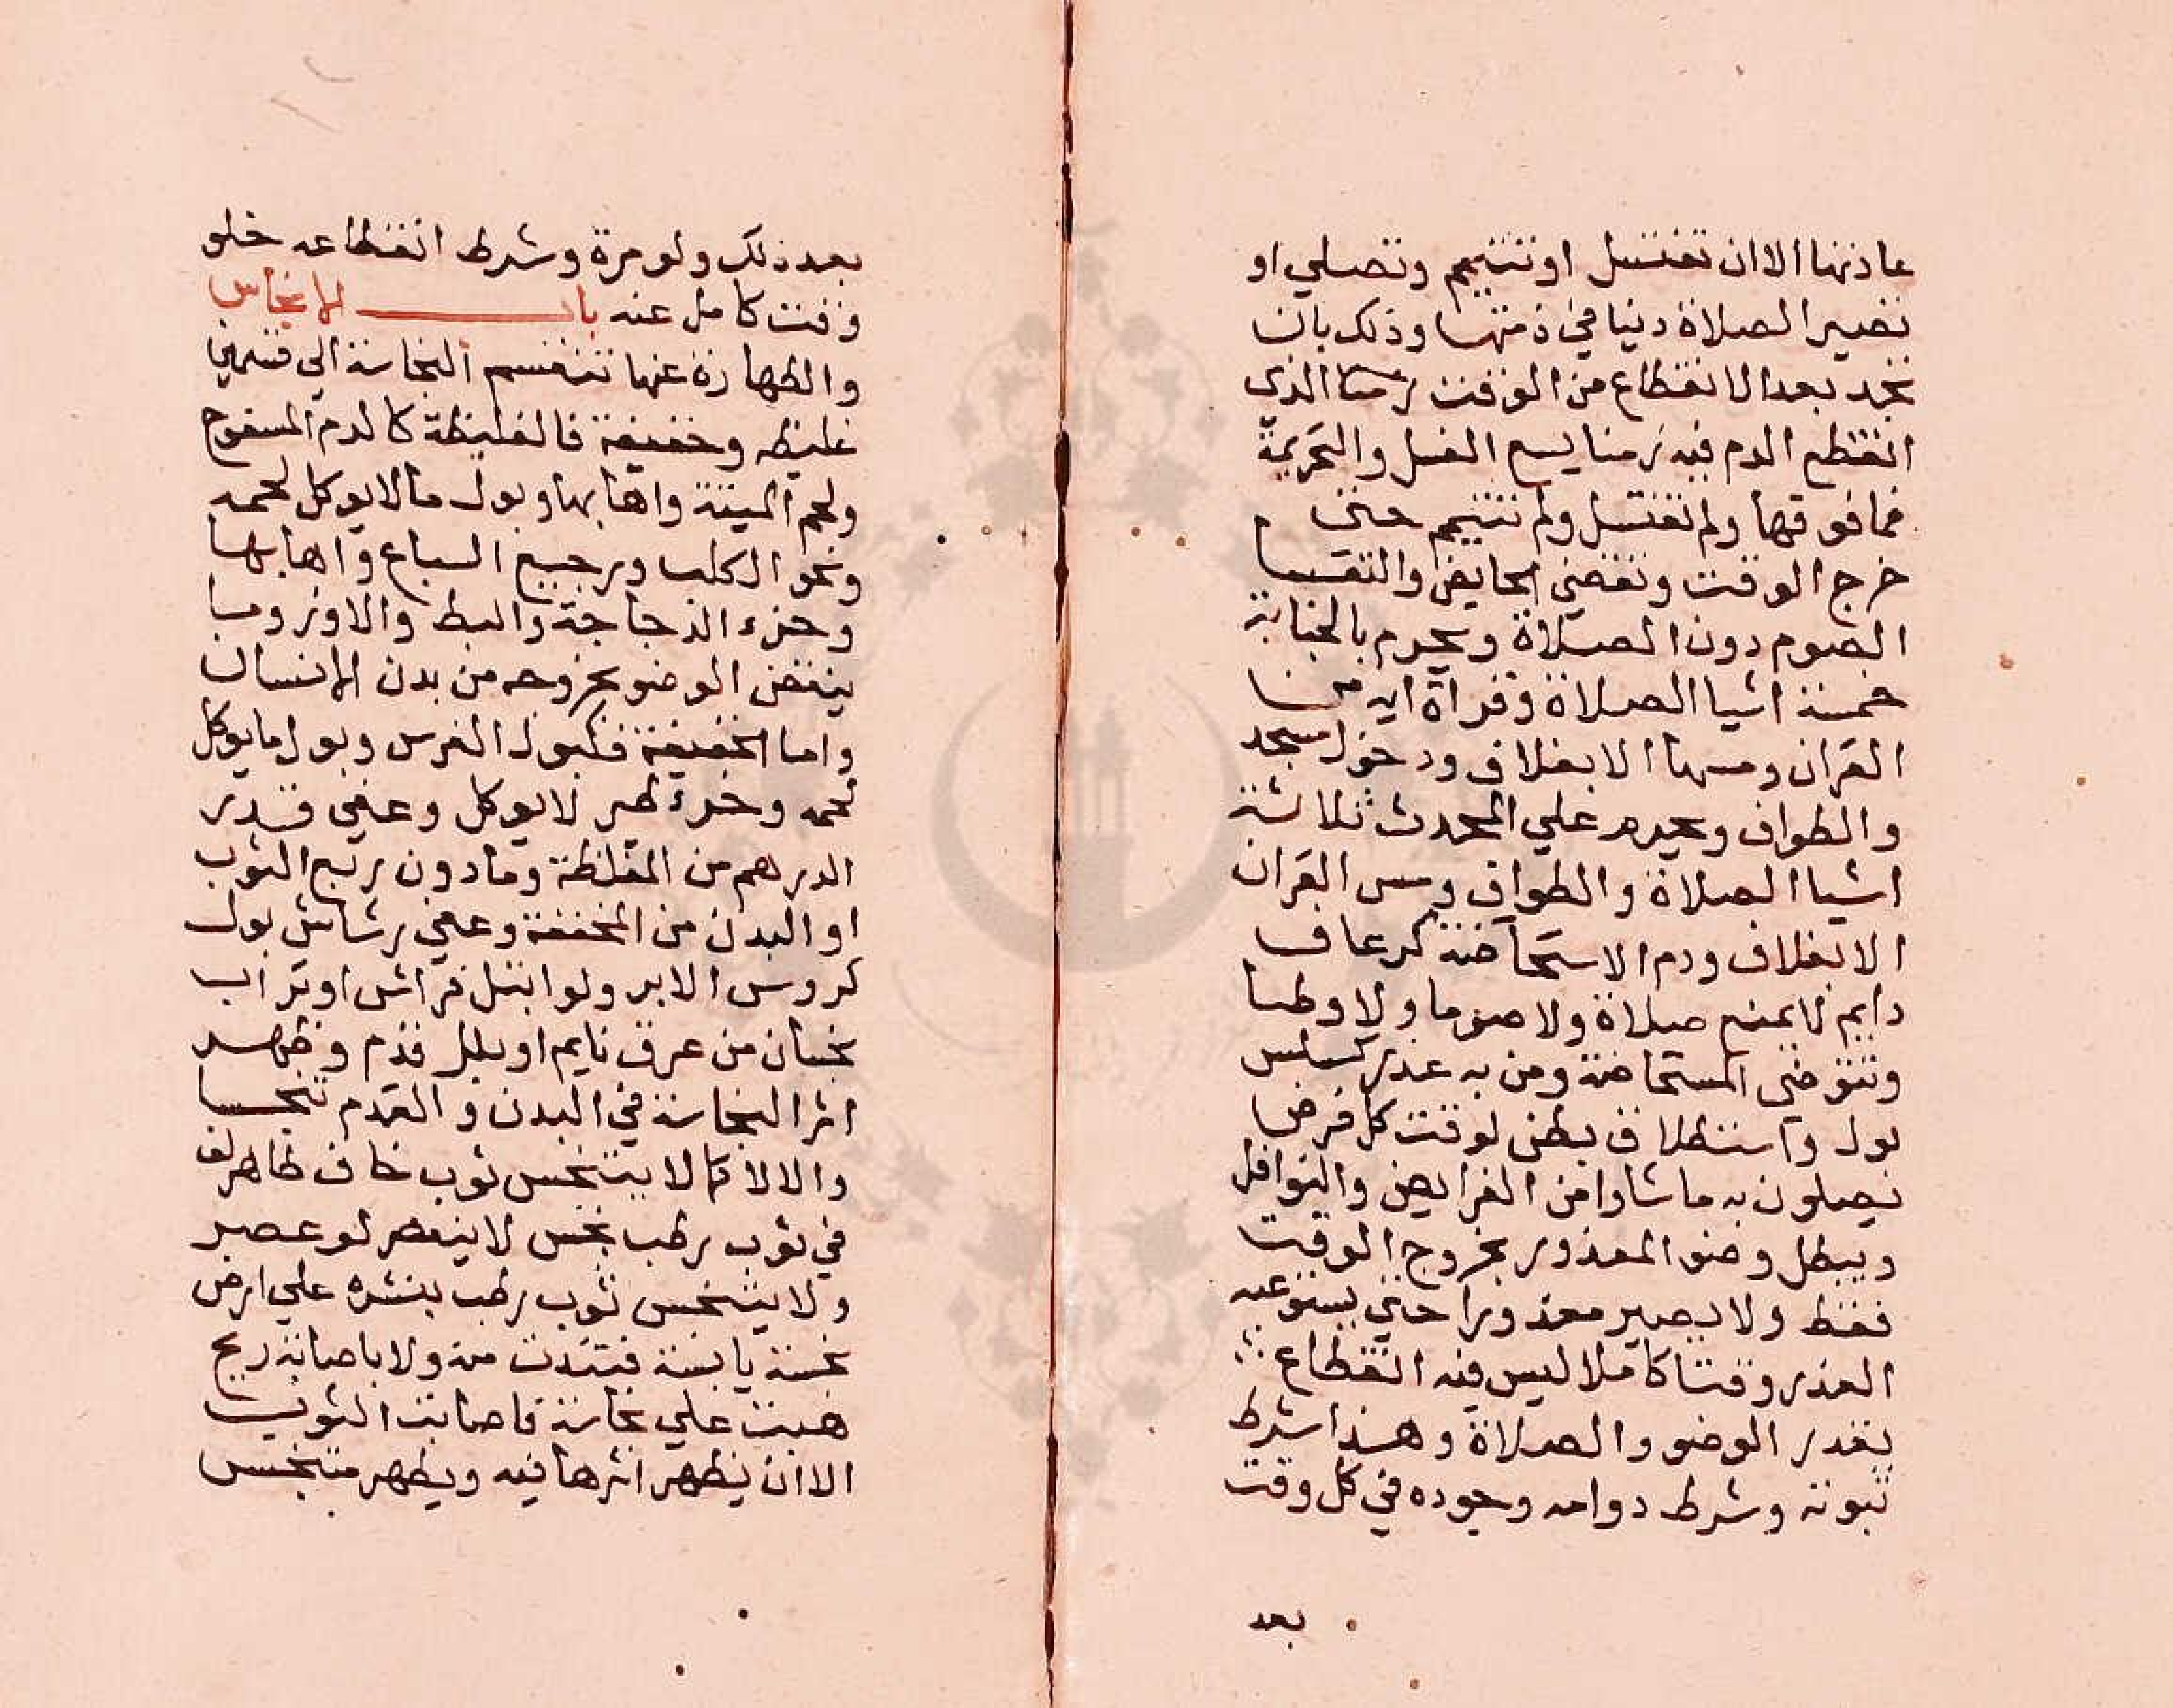 عادتها الا ان تغتسل او تتيمم وتصلي او
تصير الصلاة دينا في ذمتها وذلك بان
تجد بعد الانقطاع من الوقت زمنا الذي
انقطع الدم فيه زمنا يسع الغسل والتحريمة
فما فوقها ولم تغتسل ولم تتيمم حتى
خرج الوقت وتقضي الحايض والنفسا
الصوم دون الصلاة ويحرم بالجنابة
خمسة اشيا الصلاة وقراة اية من
القران ومسها الا بغلاف ودخول مسجد
والطواف ويحرم علي المحدث ثلاثة
اشيا الصلاة والطواف ومس القران
الا بغلاف ودم الاستحاضة كرعاف
دايم لا يمنع صلاة ولا صوما ولا وطيا
وتتوضي المستحاضة ومن به عذر كسلس
بول واستطلاق بطن لوقت كل فرض
يصلون به ما شاوا من الفرايض والنوافل
ويبطل وضو المعذور بخروج الوقت
فقط ولا يصير معذورا حتي يستوعبه
العذر وقتا كاملا ليس فيه انقطاع
بقدر الوضو والصلاة وهذا شرط
ثبوته وشرط دوامه وجوده في كل وقت
بعد
بعد ذلك ولو مرة وشرط انقطاعه خلو
وقت كامل عنه باب الانجاس
والطهارة عنها تنقسم النجاسة الي قسمين
غليظه وخفيفة فالغليظة كالدم المسفوح
ولحم الميتة واهابها وبول ما لا يوكل لحمه
ونجو الكلب ورجيع السباع واهابها
وخرء الدجاجة والبط والاوز وما
ينقض الوضو بخروجه من بدن الانسان
واما الخفيفة فكبول الفرس وبول ما يوكل
لحمه وخرء طير لا يوكل وعفي قدر
الدرهم من المغلظة وما دون ربع الثوب
او البدن من المخففة وعفي رشاش بول
كروس الابر ولو ابتل فراش او تراب
نجسان من عرق نايم او بلل قدم وظهر
اثر النجاسة في البدن والقدم تنجسا
والا لا كما لا يتنجس ثوب جاف طاهر لف
في ثوب رطب نجس لا ينعصر لو عصر
ولا يتنجس ثوب رطب بنشره علي ارض
نجسة يابسة فتندت منه ولا باصابة ريح
هبت علي نجاسة فاصابت الثوب
الا ان يظهر اثرها فيه ويطهر متنجس